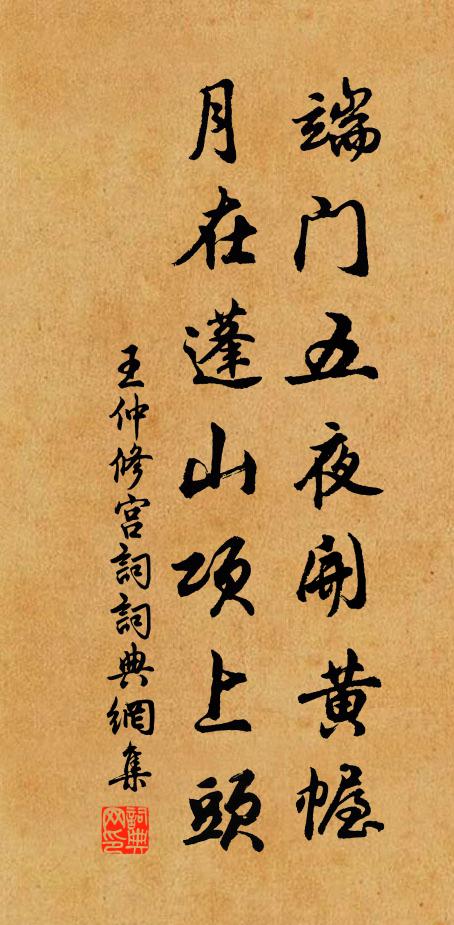 端门五夜開黄幄
月在蓬山项上頭
王仲修宫詞詞典網集
詞典网印